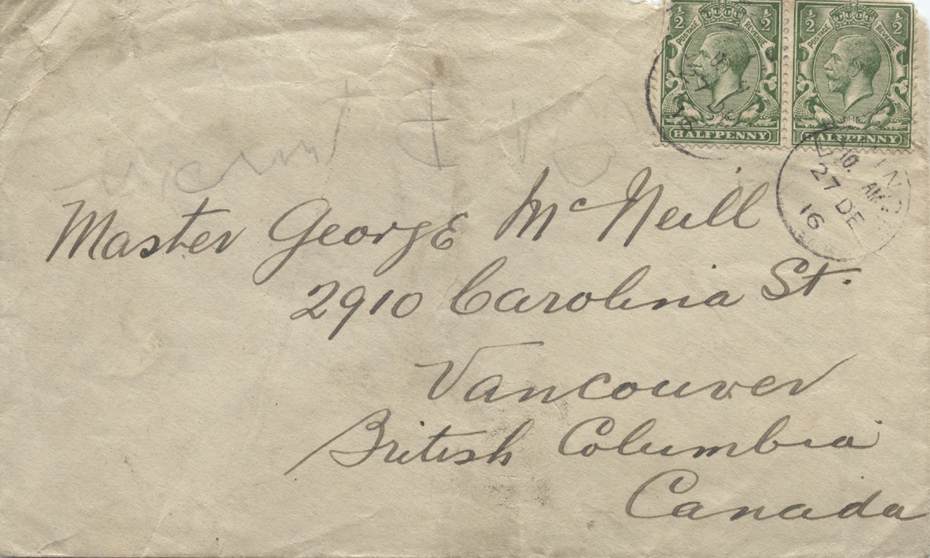 ½ ½ ½ ½
POSTAGE REVENUE POSTAGE REVENUE
HALFPENNY HALFPENNY
10. AM
27 DE
16
Master George McNeill
2910 Carolina St.
Vancouver
British Columbia
Canada